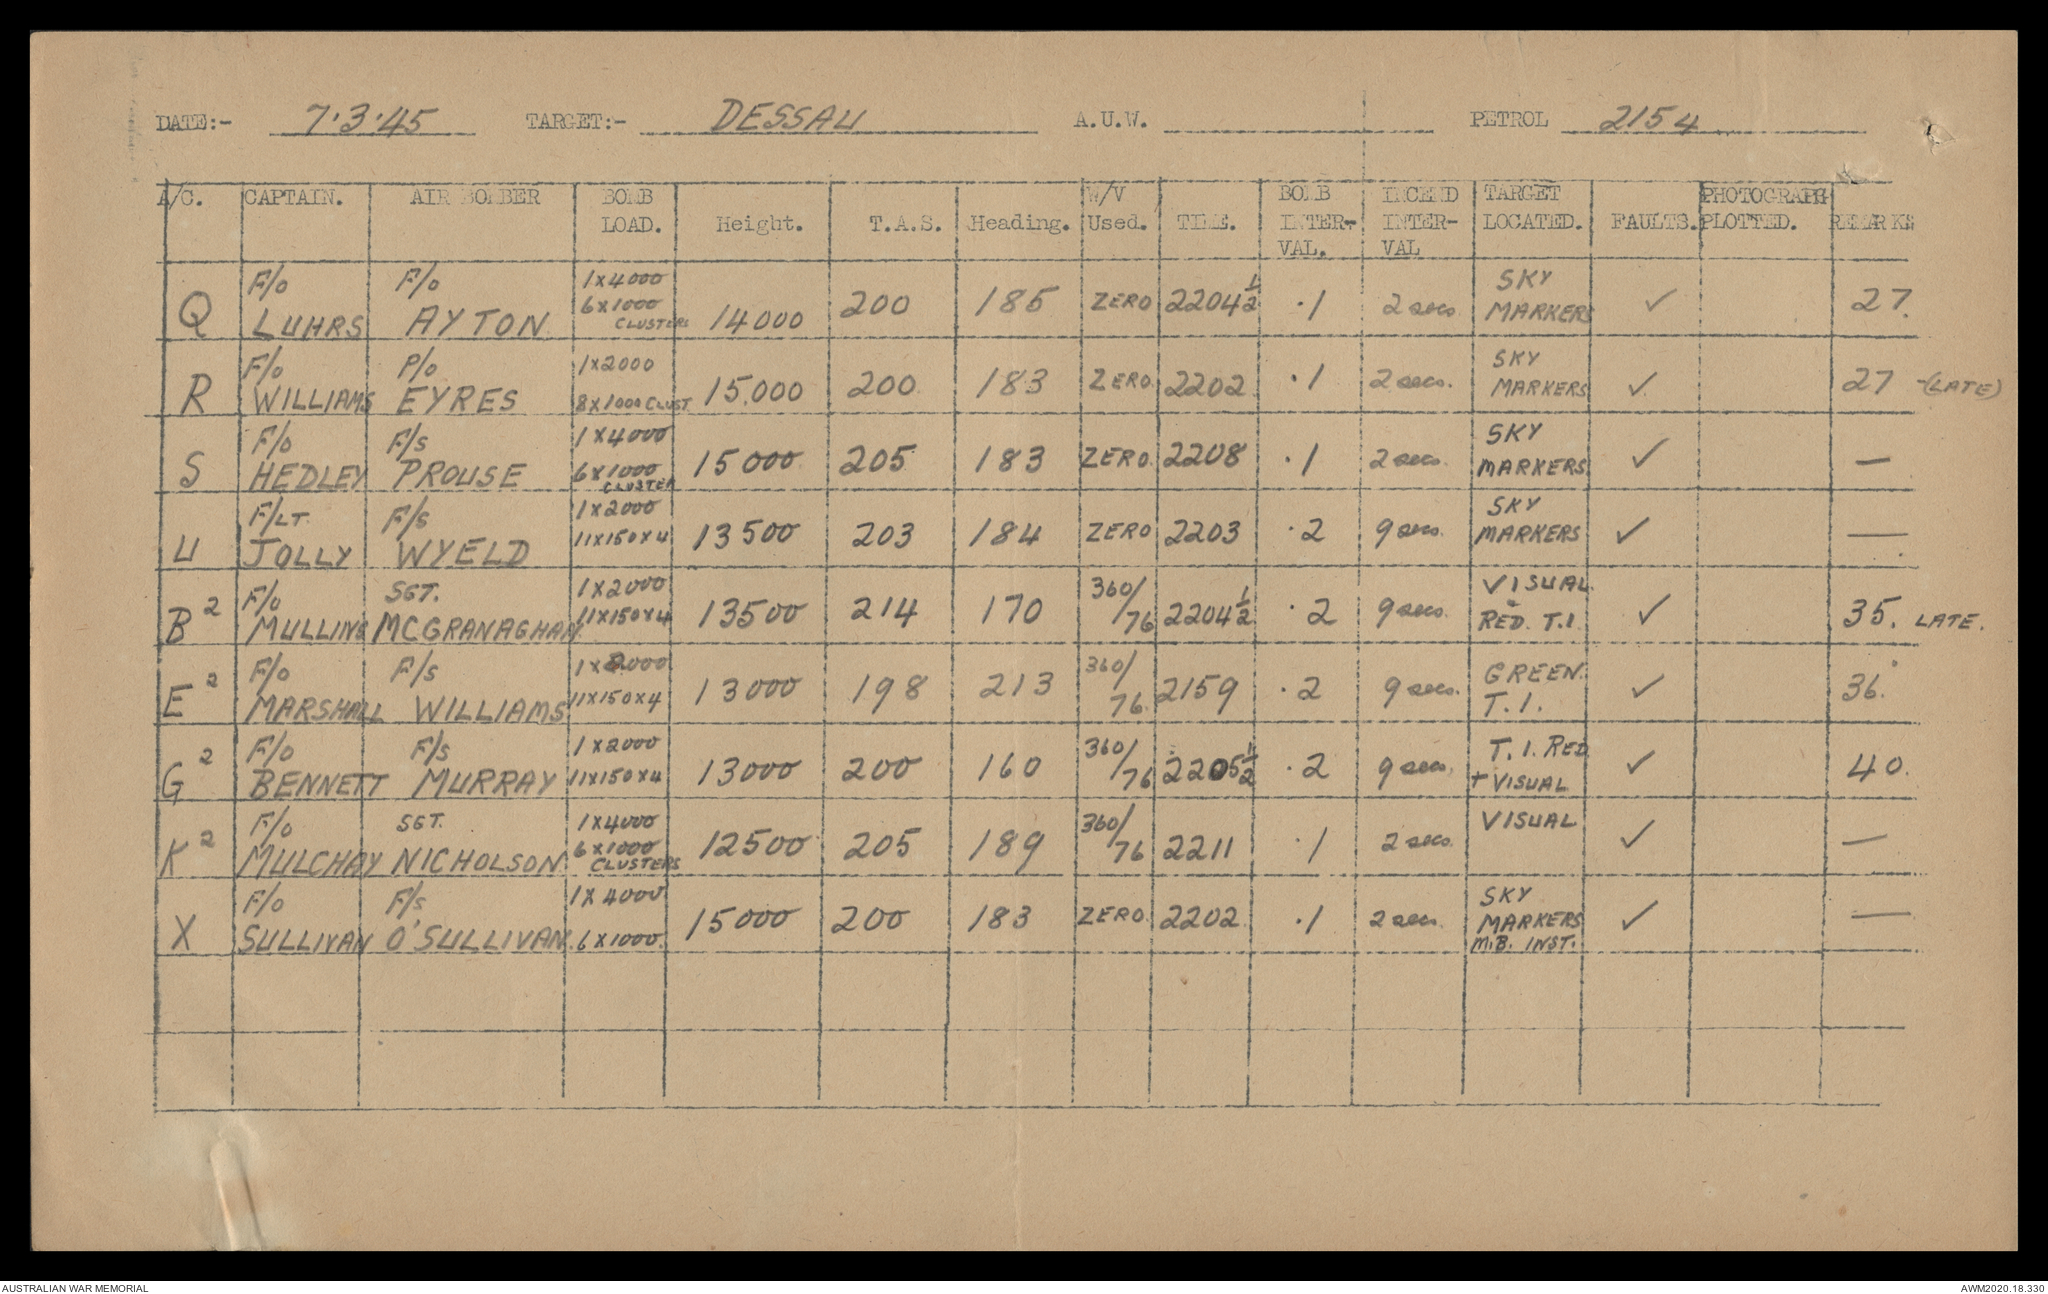 DATE:- 7.3.45 TARGET:- DESSAU A.U.W. PETROL 2154
A/C. CAPTAIN. AIR BOMBER BOMB LOAD. Height. T.A.S. Heading. W/V Used. TIME. BOMB INTER-VAL. INCEND INTER-VAL TARGET LOCATED. FAULTS. PHOTOGRAPH PLOTTED. REMARKS
Q F/O LUHRS F/O AYTON 1x4000 6x1000 CLUSTERS 14000 200 185 ZERO 2204½ .1 2 secs SKY MARKERS ✓ 27.
R F/O WILLIAMS P/O EYRES 1x2000 8x1000 CLUST. 15.000 200 183 ZERO 2202 .1 2 secs. SKY MARKERS ✓ 27 -(LATE)
S F/O HEDLEY F/S PROUSE 1x4000 6x1000 CLUSTER 15000 205 183 ZERO. 2208 .1 2 secs. SKY MARKERS ✓ —
U F/LT. JOLLY F/S WYELD 1x2000 11x150x4 13500 203 184 ZERO 2203 .2 9 secs. SKY MARKERS ✓ —
B2 F/O MULLINS SGT. MCGRANAGHAN 1x2000 11x150x4 13500 214 170 360/76 2204½ .2 9 secs. VISUAL & RED T.I. ✓ 35. LATE.
E2 F/O MARSHALL F/S WILLIAMS 1x2000 11x150x4 13000 198 213 360/76 2159 .2 9 secs. GREEN T.I. ✓ 36.
G2 F/O BENNETT F/S MURRAY 1x2000 11x150x4 13000 200 160 360/76 2205½ .2 9 secs. T.I. RED + VISUAL ✓ 40.
K2 F/O MULCHAY SGT. NICHOLSON 1x4000 6x1000 CLUSTERS 12500 205 189 360/76 2211 .1 2 secs. VISUAL ✓ —
X F/O SULLIVAN F/S O'SULLIVAN. 1x4000 6x1000. 15000 200 183 ZERO. 2202. .1 2 secs. SKY MARKERS M.B. INST. ✓ —
AUSTRALIAN WAR MEMORIAL AWM2020.18.330